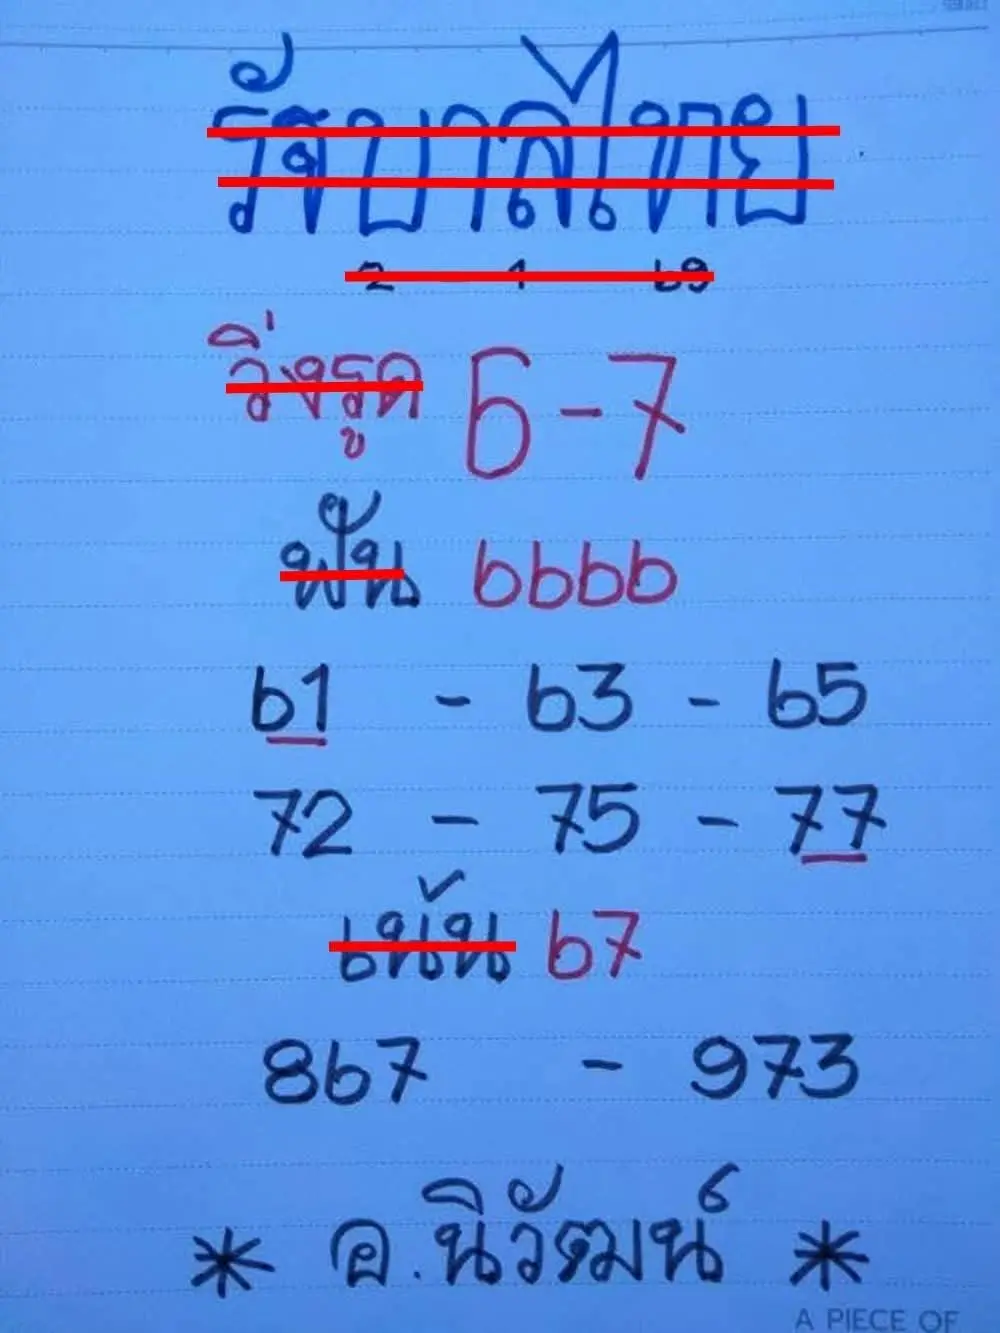 รัฐบาลไทย
2 1 69
วิ่งรูด 6-7
ฟัน 6666
61 - 63 - 65
72 - 75 - 77
เน้น 67
867 - 973
* อ.นิวัฒน์ *
A PIECE OF